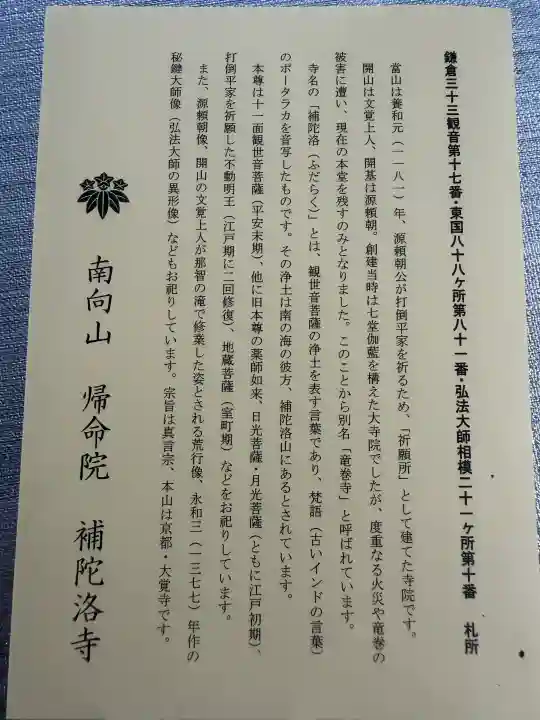 鎌倉三十三観音第十七番・東国八十八ヶ所第八十一番・弘法大師相模二十一ヶ所第十番　札所
當山は養和元（一一八一）年、源頼朝公が打倒平家を祈るため、「祈願所」として建てた寺院です。
開山は文覚上人、開基は源頼朝。創建当時は七堂伽藍を構えた大寺院でしたが、度重なる火災や竜巻の
被害に遭い、現在の本堂を残すのみとなりました。このことから別名「竜巻寺」と呼ばれています。
寺名の「補陀洛（ふだらく）」とは、観世音菩薩の浄土を表す言葉であり、梵語（古いインドの言葉）
のポータラカを音写したものです。その浄土は南の海の彼方、補陀洛山にあるとされています。
本尊は十一面観世音菩薩（平安末期）、他に旧本尊の薬師如来、日光菩薩・月光菩薩（ともに江戸初期）、
打倒平家を祈願した不動明王（江戸期に二回修復）、地蔵菩薩（室町期）などをお祀りしています。
また、源頼朝像、開山の文覚上人が那智の滝で修業した姿とされる荒行像、永和三（一三七七）年作の
秘鍵大師像（弘法大師の異形像）などもお祀りしています。宗旨は真言宗、本山は京都・大覚寺です。
南向山　帰命院　補陀洛寺